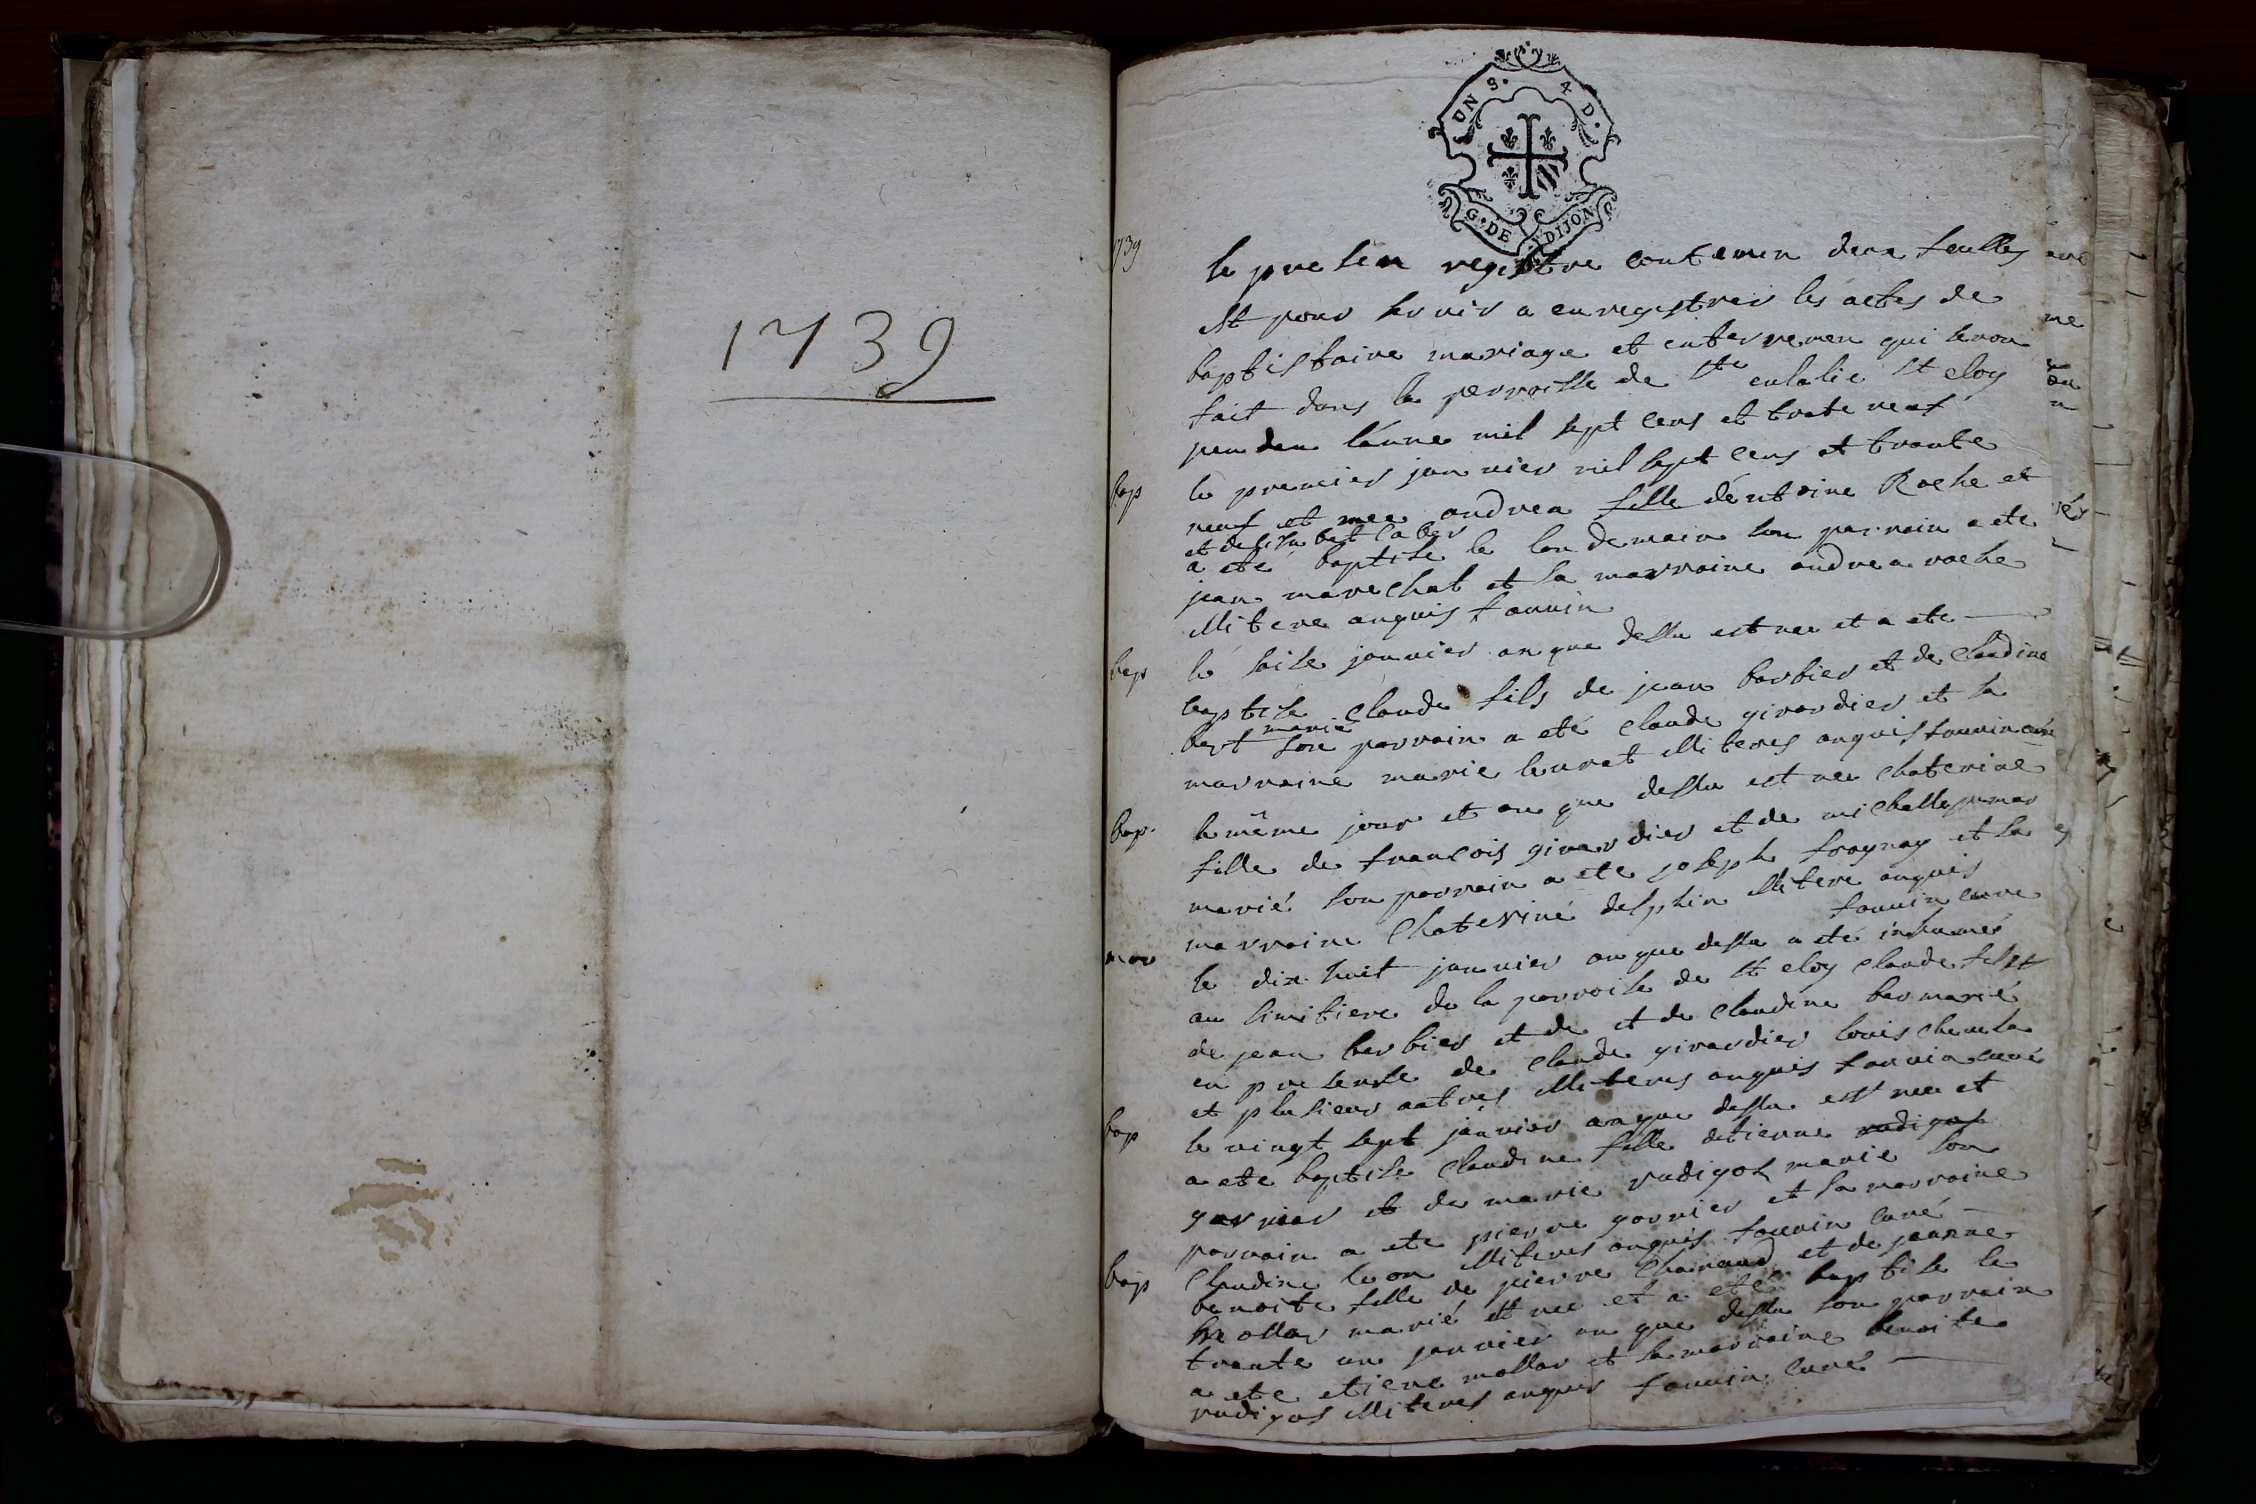 1739
UN S. 4 D.
G. DE DIJON
1739
le presen registre contenen deux feuilles
est pour servir a enregistrer les actes de
baptistaire mariage et enterremen qui seron
fait dans la perroisse de Ste eulalie St eloy
penden lánne mil sept cens et trente neuf
bap
le premier janvier mil sept cens et trante
neuf et nee andrea fille déntoine Roche et
a eté baptisé le lendemain son parrain a ete
jean marechal et la marroine andrea roche
Miteres anguis
bap
le saise janvier an que dessu est nee et a ete
baptise Claude fils de jean barbier et de Claudine
bert marié son parroin a eté Claude girardier et la
marroine marie leurat Miteres anguis curé
bap
le même jour et an que dessu est nee Chaterine
fille de francois girardier et de michelle
marié son parroin a ete joseph et la
marroine Chateriné delphin Mitere anguis
curé
mor
le dix huit janvier an que dessu a eté inhumé
au simitiere de la parroise de St eloy Claude
de jean barbier et de et de Claudine ber marié
en presense de Claude girardier louis
et plusieur autres Miteres anguis curé
bap
le vingt sept janvier an que dessu est nee et
a ete baptise Claudine fille detienne rudigos
garnier et de marie rudigos marié son
parroin a ete pierre gornier et la marroine
Claudine leon Miteres anguis curé
bap
benoite fille de pierre Charnaud et de jeanne
mollar marié et nee et a eté baptise le
trante un janvier an que dessu son parroin
a ete etiene mollar et la marroine benoite
rudigos Miteres anguis curé